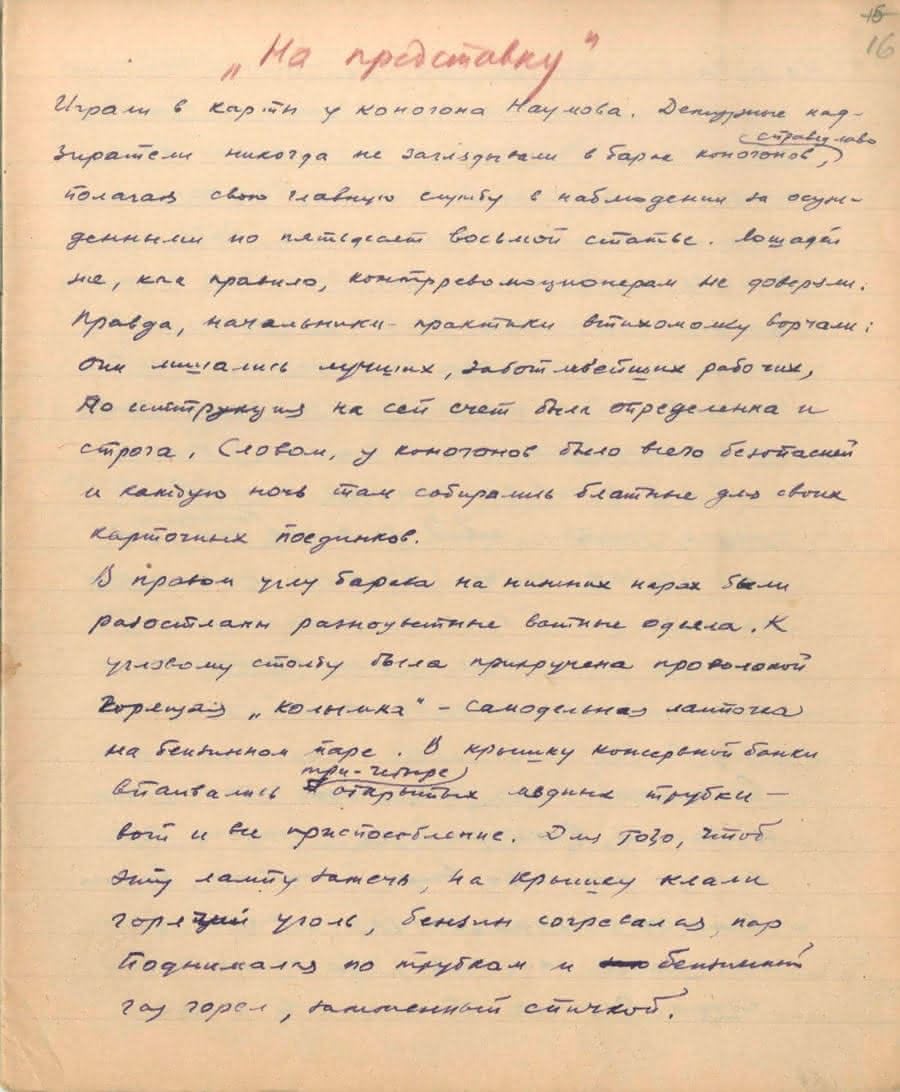 15
16
„На представку"
Играли в карты у коногона Наумова. Дежурные над-
справедливо
зиратели никогда не заглядывали в барак коногонов,
полагая свою главную службу в наблюдении за осуж-
денными по пятьдесят восьмой статье. Лошадей
же, как правило, контрреволюционерам не доверяли.
Правда, начальники-практики втихомолку ворчали:
они лишались лучших, заботливейших рабочих,
Но инструкция на сей счет была определенна и
строга. Словом, у коногонов было всего безопасней
и каждую ночь там собирались блатные для своих
карточных поединков.
В правом углу барака на нижних нарах были
разостланы разноцветные ватные одеяла. К
угловому столбу была прикручена проволокой
горящая „колымка" – самодельная лампочка
на бензинном паре. В крышку консервной банки
три-четыре
впаивались открытых медных трубки –
вот и все приспособление. Для того, чтоб
эту лампу зажечь, на крышку клали
горячий уголь, бензин согревался, пар
поднимался по трубкам и бензинный
газ горел, зажженный спичкой.